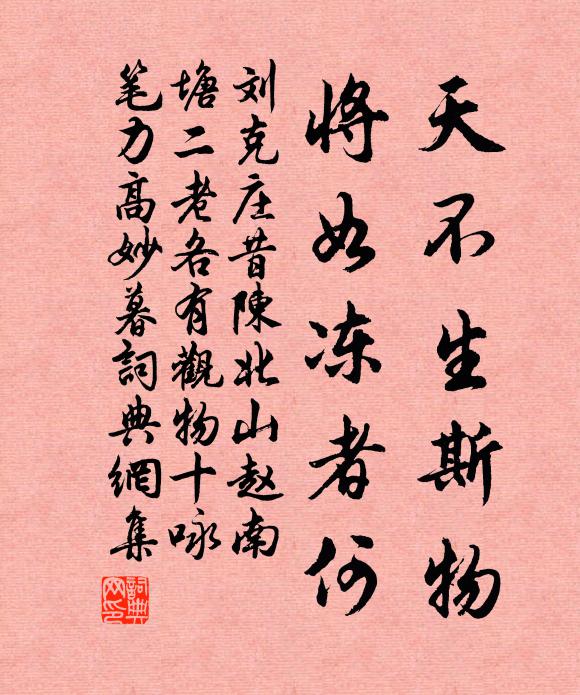 天不生斯物
将如冻者何
刘克庄昔陳北山赵南
塘二老各有觀物十咏
笔力高妙暮詞典網集
詞典網印